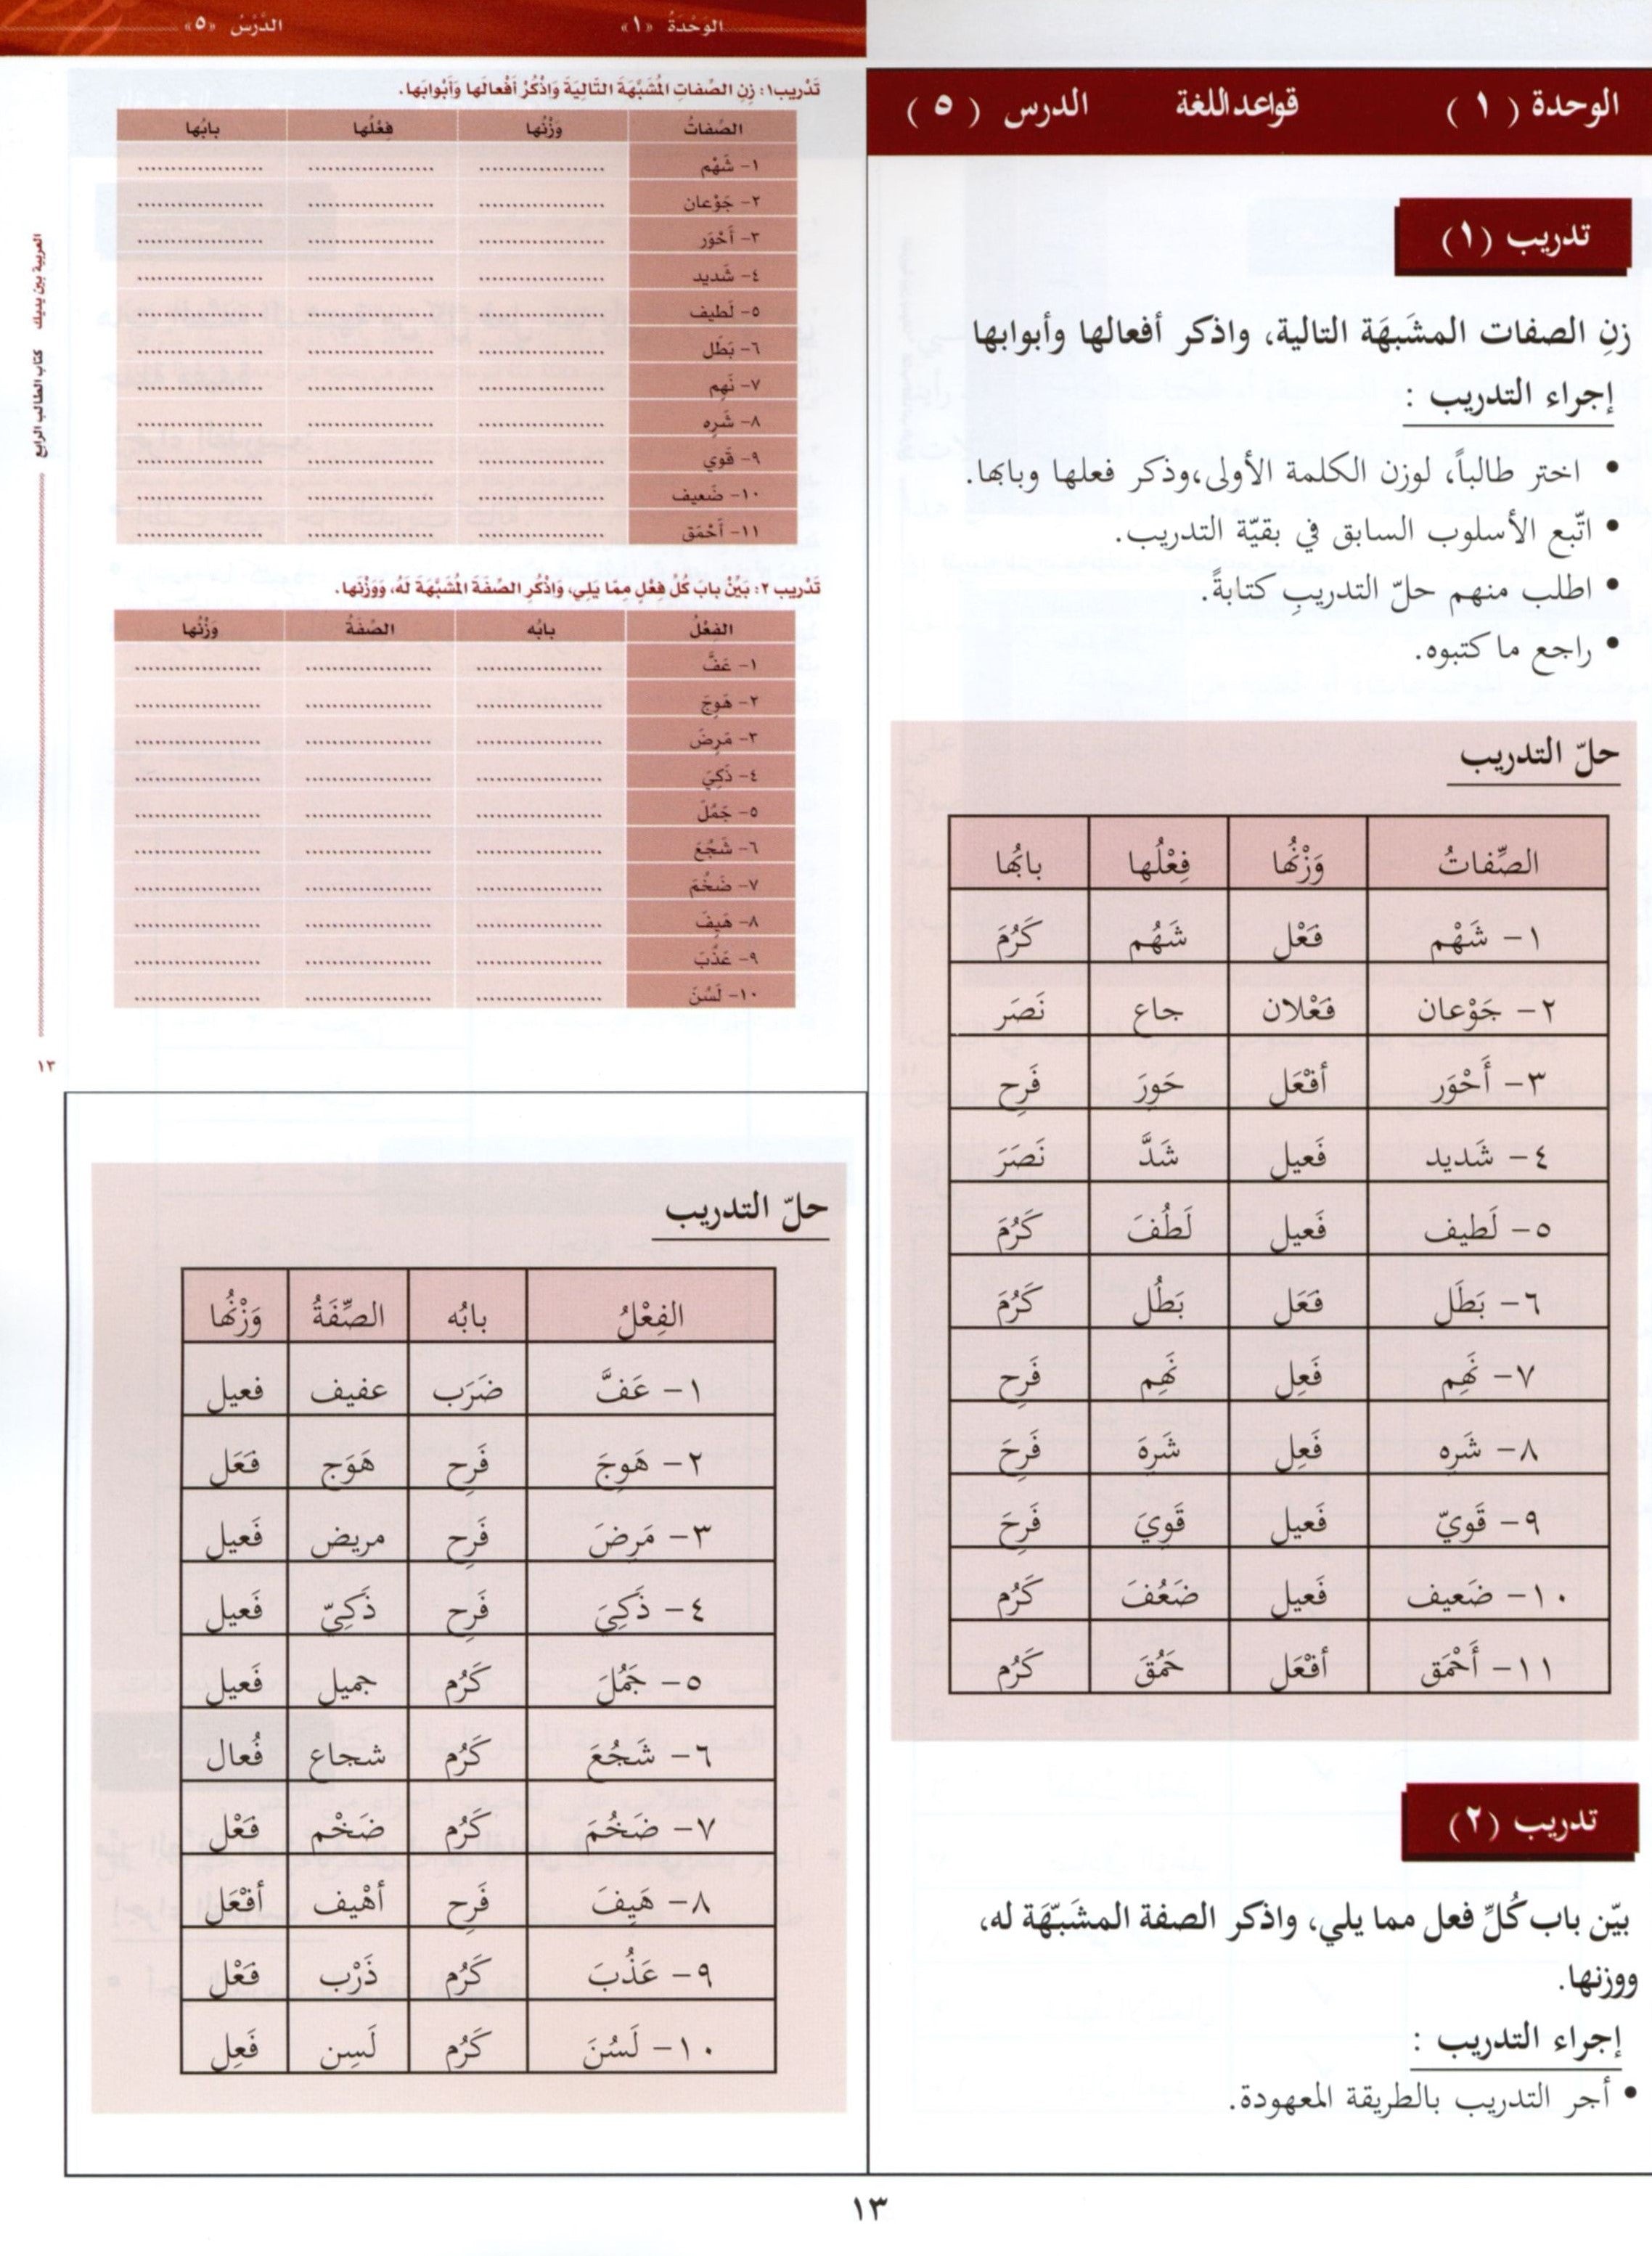 الوَحْدَةُ «١»
الدَّرْسُ «٥»
الوحدة ( ١ ) قواعد اللغة الدرس ( ٥ )
تدريب (١)
زنِ الصفات المشَبهَة التالية، واذكر أفعالها وأبوابها
إجراء التدريب :
• اختر طالباً، لوزن الكلمة الأولى،وذكر فعلها وبابها.
• اتّبع الأسلوب السابق في بقيّة التدريب.
• اطلب منهم حلّ التدريبِ كتابةً.
• راجع ما كتبوه.
حلّ التدريب
الصِّفاتُ وَزْنُها فِعْلُها بابُها
١- شَهْم فَعْل شَهُم كَرُمَ
٢- جَوْعان فَعْلان جاع نَصَر
٣- أَحْوَر أفْعَل حَوِرَ فَرِح
٤- شَديد فَعيل شَدَّ نَصَرَ
٥- لَطيف فَعيل لَطُفَ كَرُمَ
٦- بَطَل فَعَل بَطُل كَرُمَ
٧- نَهِم فَعِل نَهِم فَرِح
٨- شَرِه فَعِل شَرِهَ فَرِحَ
٩- قَويّ فَعيل قَوِيَ فَرِحَ
١٠- ضَعيف فَعيل ضَعُفَ كَرُم
١١- أَحْمَق أفْعَل حَمُقَ كَرُم
تدريب (٢)
بيّن باب كُلِّ فعل مما يلي، واذكر الصفة المشَبّهَة له،
ووزنها.
إجراء التدريب :
• أجر التدريب بالطريقة المعهودة.
تَدْريب١: زِنِ الصِّفاتِ المُشَبَّهَةَ التَّالِيَةَ وَاذْكُرْ أَفْعالَها وَأَبْوابَها.
الصِّفاتُ وَزْنُها فِعْلُها بابُها
١- شَهْم ................... ................... ...................
٢- جَوْعان ................... ................... ...................
٣- أَحْوَر ................... ................... ...................
٤- شَديد ................... ................... ...................
٥- لَطيف ................... ................... ...................
٦- بَطَل ................... ................... ...................
٧- نَهِم ................... ................... ...................
٨- شَرِه ................... ................... ...................
٩- قَوي ................... ................... ...................
١٠- ضَعيف ................... ................... ...................
١١- أَحْمَق ................... ................... ...................
تَدْريب ٢: بَيِّنْ بابَ كُلِّ فِعْلٍ مِمّا يَلِي، وَاذْكُرِ الصِّفَةَ المُشَبَّهَةَ لَهُ، وَوَزْنَها.
الفِعْلُ بابُه الصِّفَةُ وَزْنُها
١- عَفَّ ................... ................... ...................
٢- هَوِجَ ................... ................... ...................
٣- مَرِضَ ................... ................... ...................
٤- ذَكِيَ ................... ................... ...................
٥- جَمُلَ ................... ................... ...................
٦- شَجُعَ ................... ................... ...................
٧- ضَخُمَ ................... ................... ...................
٨- هَيِفَ ................... ................... ...................
٩- عَذُبَ ................... ................... ...................
١٠- لَسُنَ ................... ................... ...................
العربية بين يديك كتاب الطالب الرابع
١٣
حلّ التدريب
الفِعْلُ بابُه الصِّفَةُ وَزْنُها
١- عَفَّ ضَرَب عفيف فعيل
٢- هَوِجَ فَرِح هَوَج فَعَل
٣- مَرِضَ فَرِح مريض فَعيل
٤- ذَكِيَ فَرِح ذَكِيّ فَعيل
٥- جَمُلَ كَرُم جميل فَعيل
٦- شَجُعَ كَرُم شجاع فُعال
٧- ضَخُمَ كَرُم ضَخْم فَعْل
٨- هَيِفَ فَرِح أهْيف أفْعَل
٩- عَذُبَ كَرُم ذَرْب فَعْل
١٠- لَسُنَ كَرُم لَسِن فَعِل
١٣